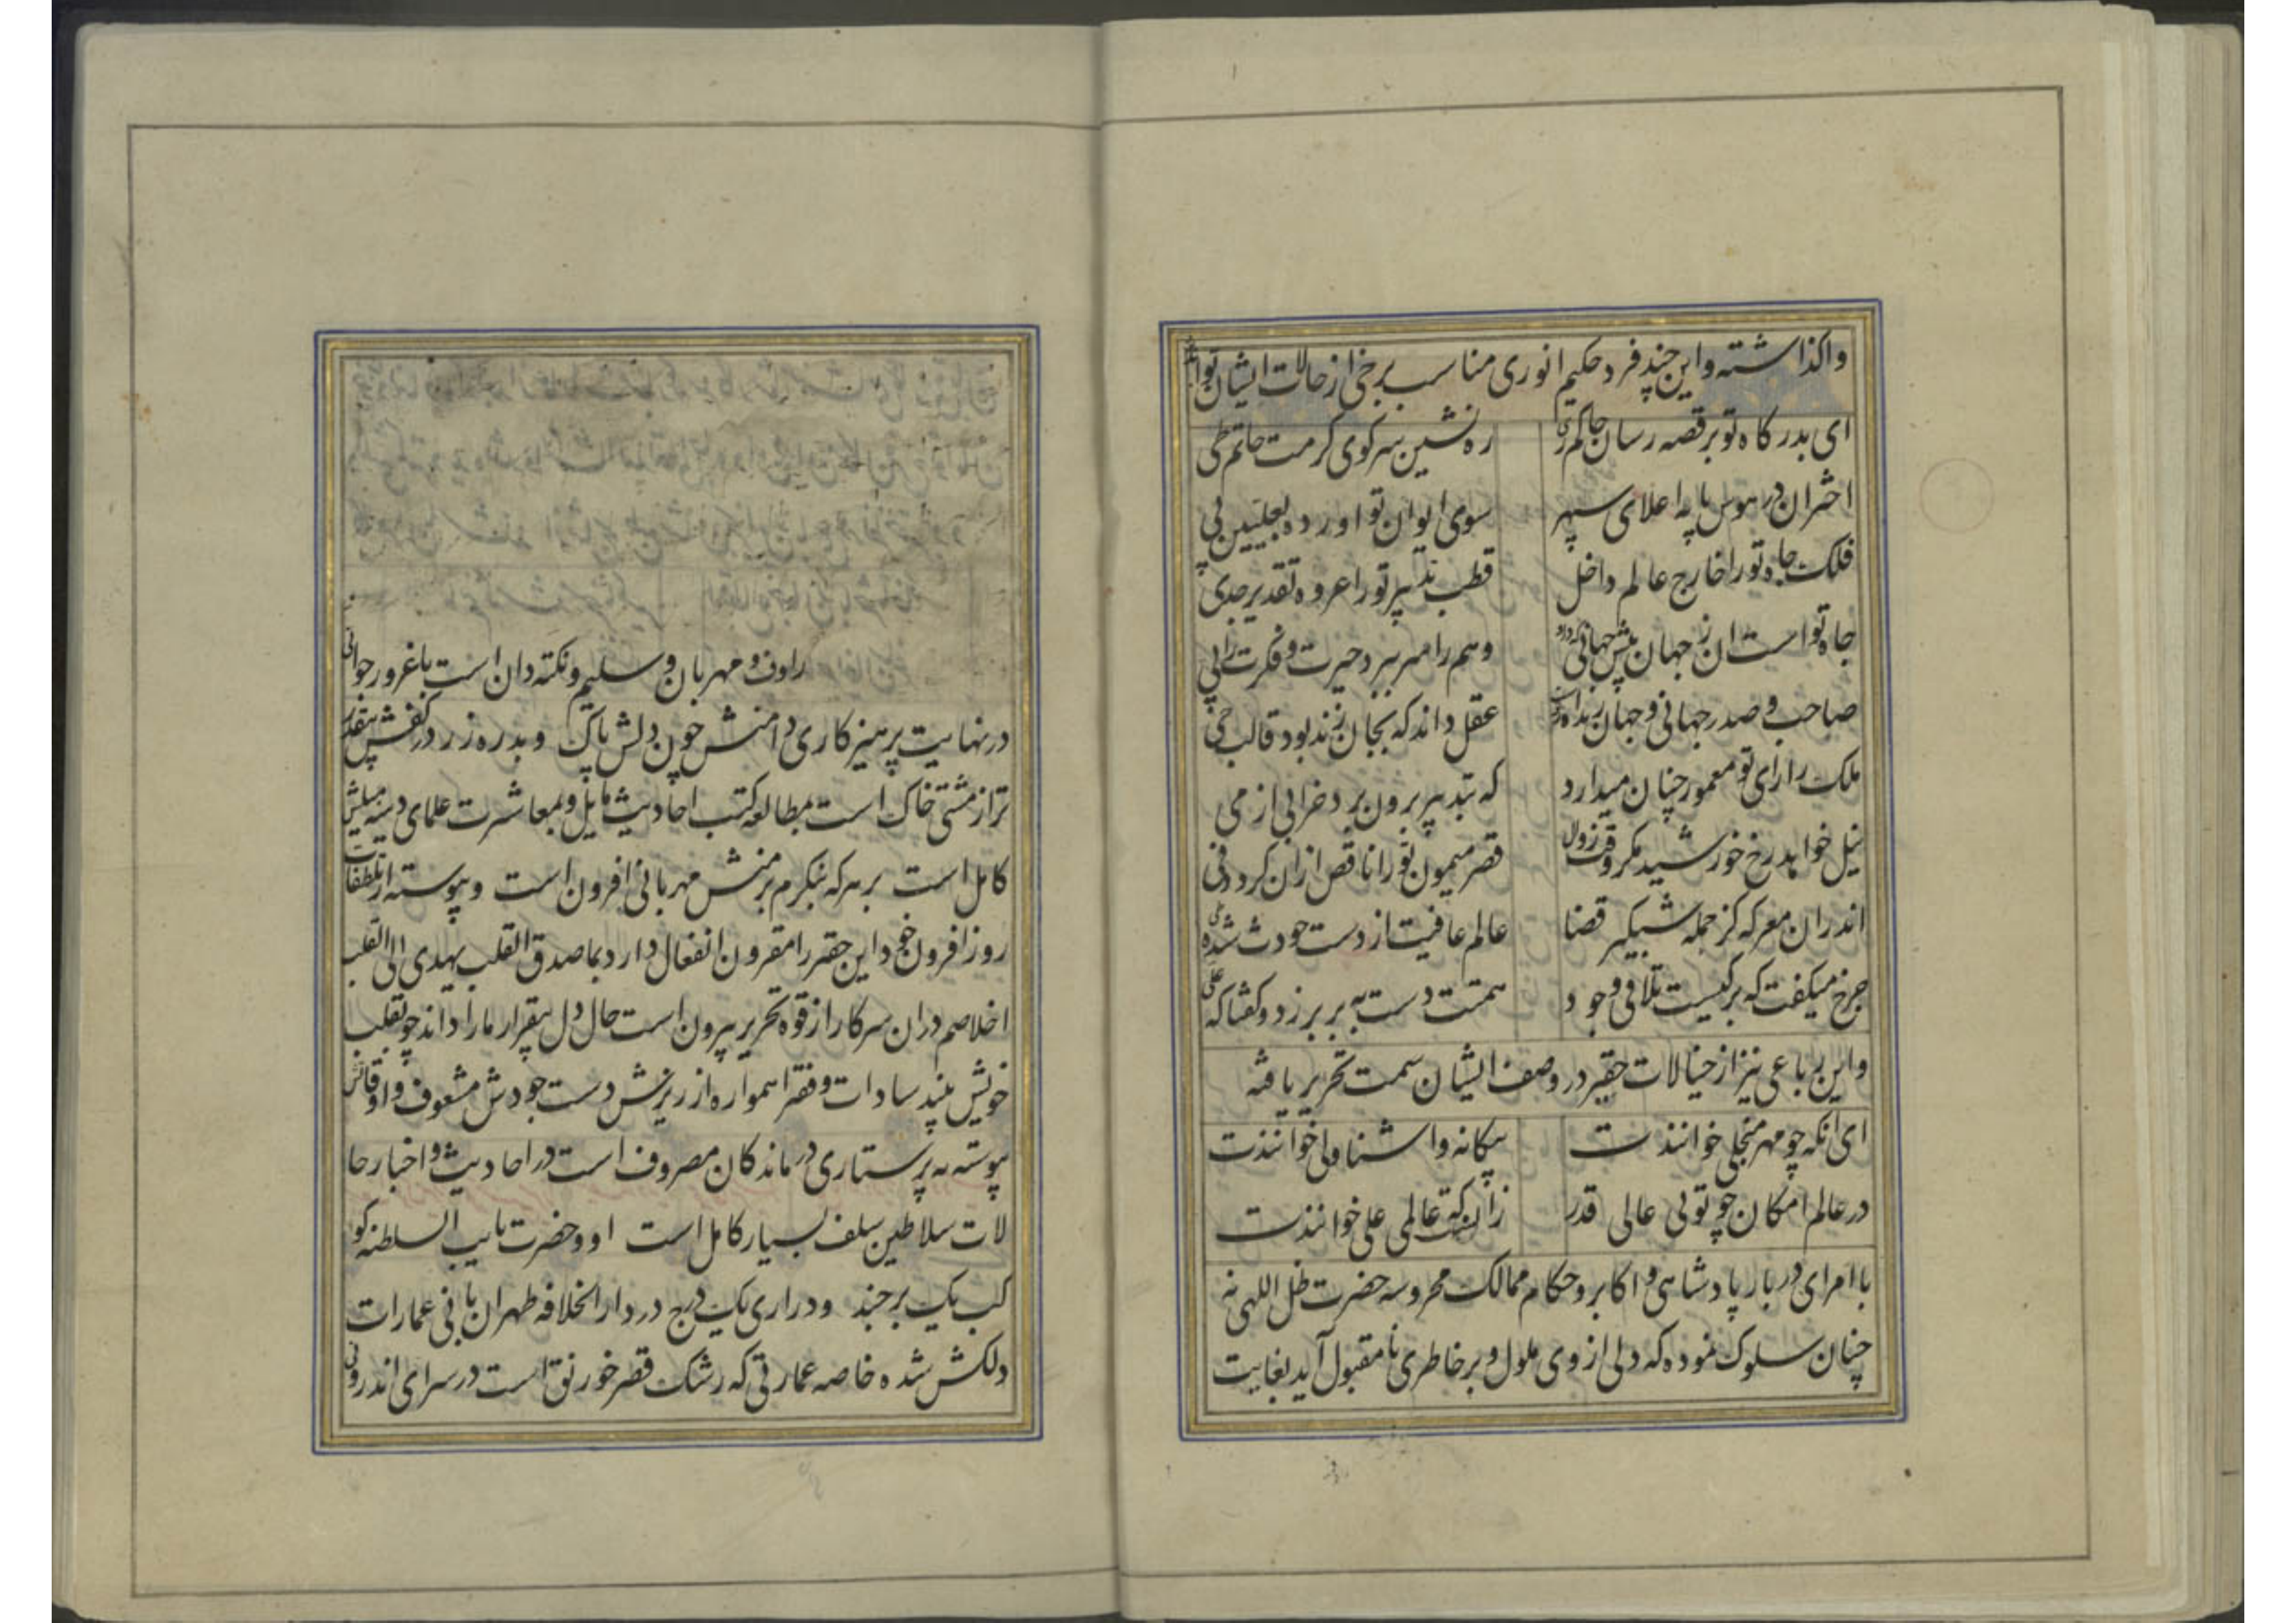 واکذاشته و این چند فرد حکیم انوری مناسب برخی از حالات ایشان تواند
ای بدر کاه تو بر قصه رسان حاکم ری
ره نشین سر کوی کرمت حاتم طی
اختران در هوس پایه اعلای سپهر
سوی ایوان تو آورده
فلک جاه تو را خارج عالم داخل
قطب تدبیر تو را عروه تقدیر جدی
جاه تو است ان ز جهان پیش جهانی که درو
وهم را سر ببرد حیرت و فکرت را پی
صاحب و صدر جهانی و جهان زنده
عقل داند که بجان زنده بود قالب حی
ملک را رای تو معمور چنان میدارد
که بتدبیر برون برد خرابی از می
نیل خواهد رخ خورشید مکر وقت زوال
قصر میمون تو را ناقص از ان کرد و فی
اندر ان معرکه کز حمله شبکیر قضا
عالم عافیت از دست حودث شده
چرخ میکفت که بر کیست تلافی وجود
همتت دست به بر بر زد و کفتا که علی
و این رباعی نیز از خیالات حقیر در وصف ایشان سمت تحریر یافته
ای انکه چو مهر منجلی خوانندت
بیکانه و اشنا ولی خوانندت
در عالم امکان چو تویی عالی قدر
زانست که عالمی علی خوانندت
با امرای دربار پادشاهی و اکابر و حکام ممالک محروسه حضرت ظل اللهی نه
چنان سلوک نموده که دلی از وی ملول و بر خاطری نا مقبول آید بغایت
راوف و مهربان و سلیم و نکته دان است با غرور جوانی
در نهایت پرهیز کاری دامنش چون دلش پاک و بدره زر در کفش بیقدر
تر از مشتی خاک است بمطالعه کتب احادیث مایل و بمعاشرت علمای دینیه میلش
کامل است بر هر که بنکرم بر منش مهربانی افزون است و پیوسته از تلطفات
روز افزون خود این حقیر را مقرون انفعال دارد بما صدق القلب یهدی الی القلب
اخلاصم در ان سرکار از قوه تحریر بیرون است حال دل بیقرار ما را داند چو بقلب
خویش بیند سادات و فقرا همواره از ریزش دست جودش مشعوف و اوقاتش
پیوسته به پرستاری درماندکان مصروف است در احادیث و اخبار حا
لات سلاطین سلف بسیار کامل است او و حضرت نایب السلطنه کو
کب یک برجند و دراری یک درج در دار الخلافه طهران بانی عمارات
دلکش شده خاصه عمارتی که رشک قصر خورنق است در سرای اندرونی